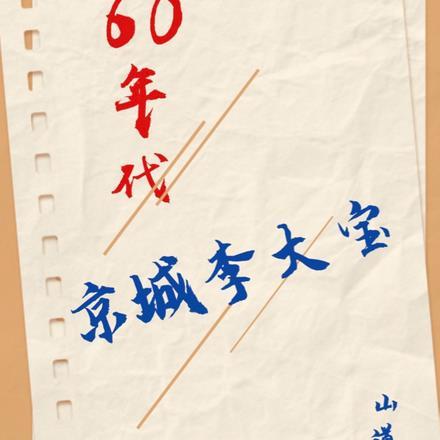 60年代
京城李大宝
山